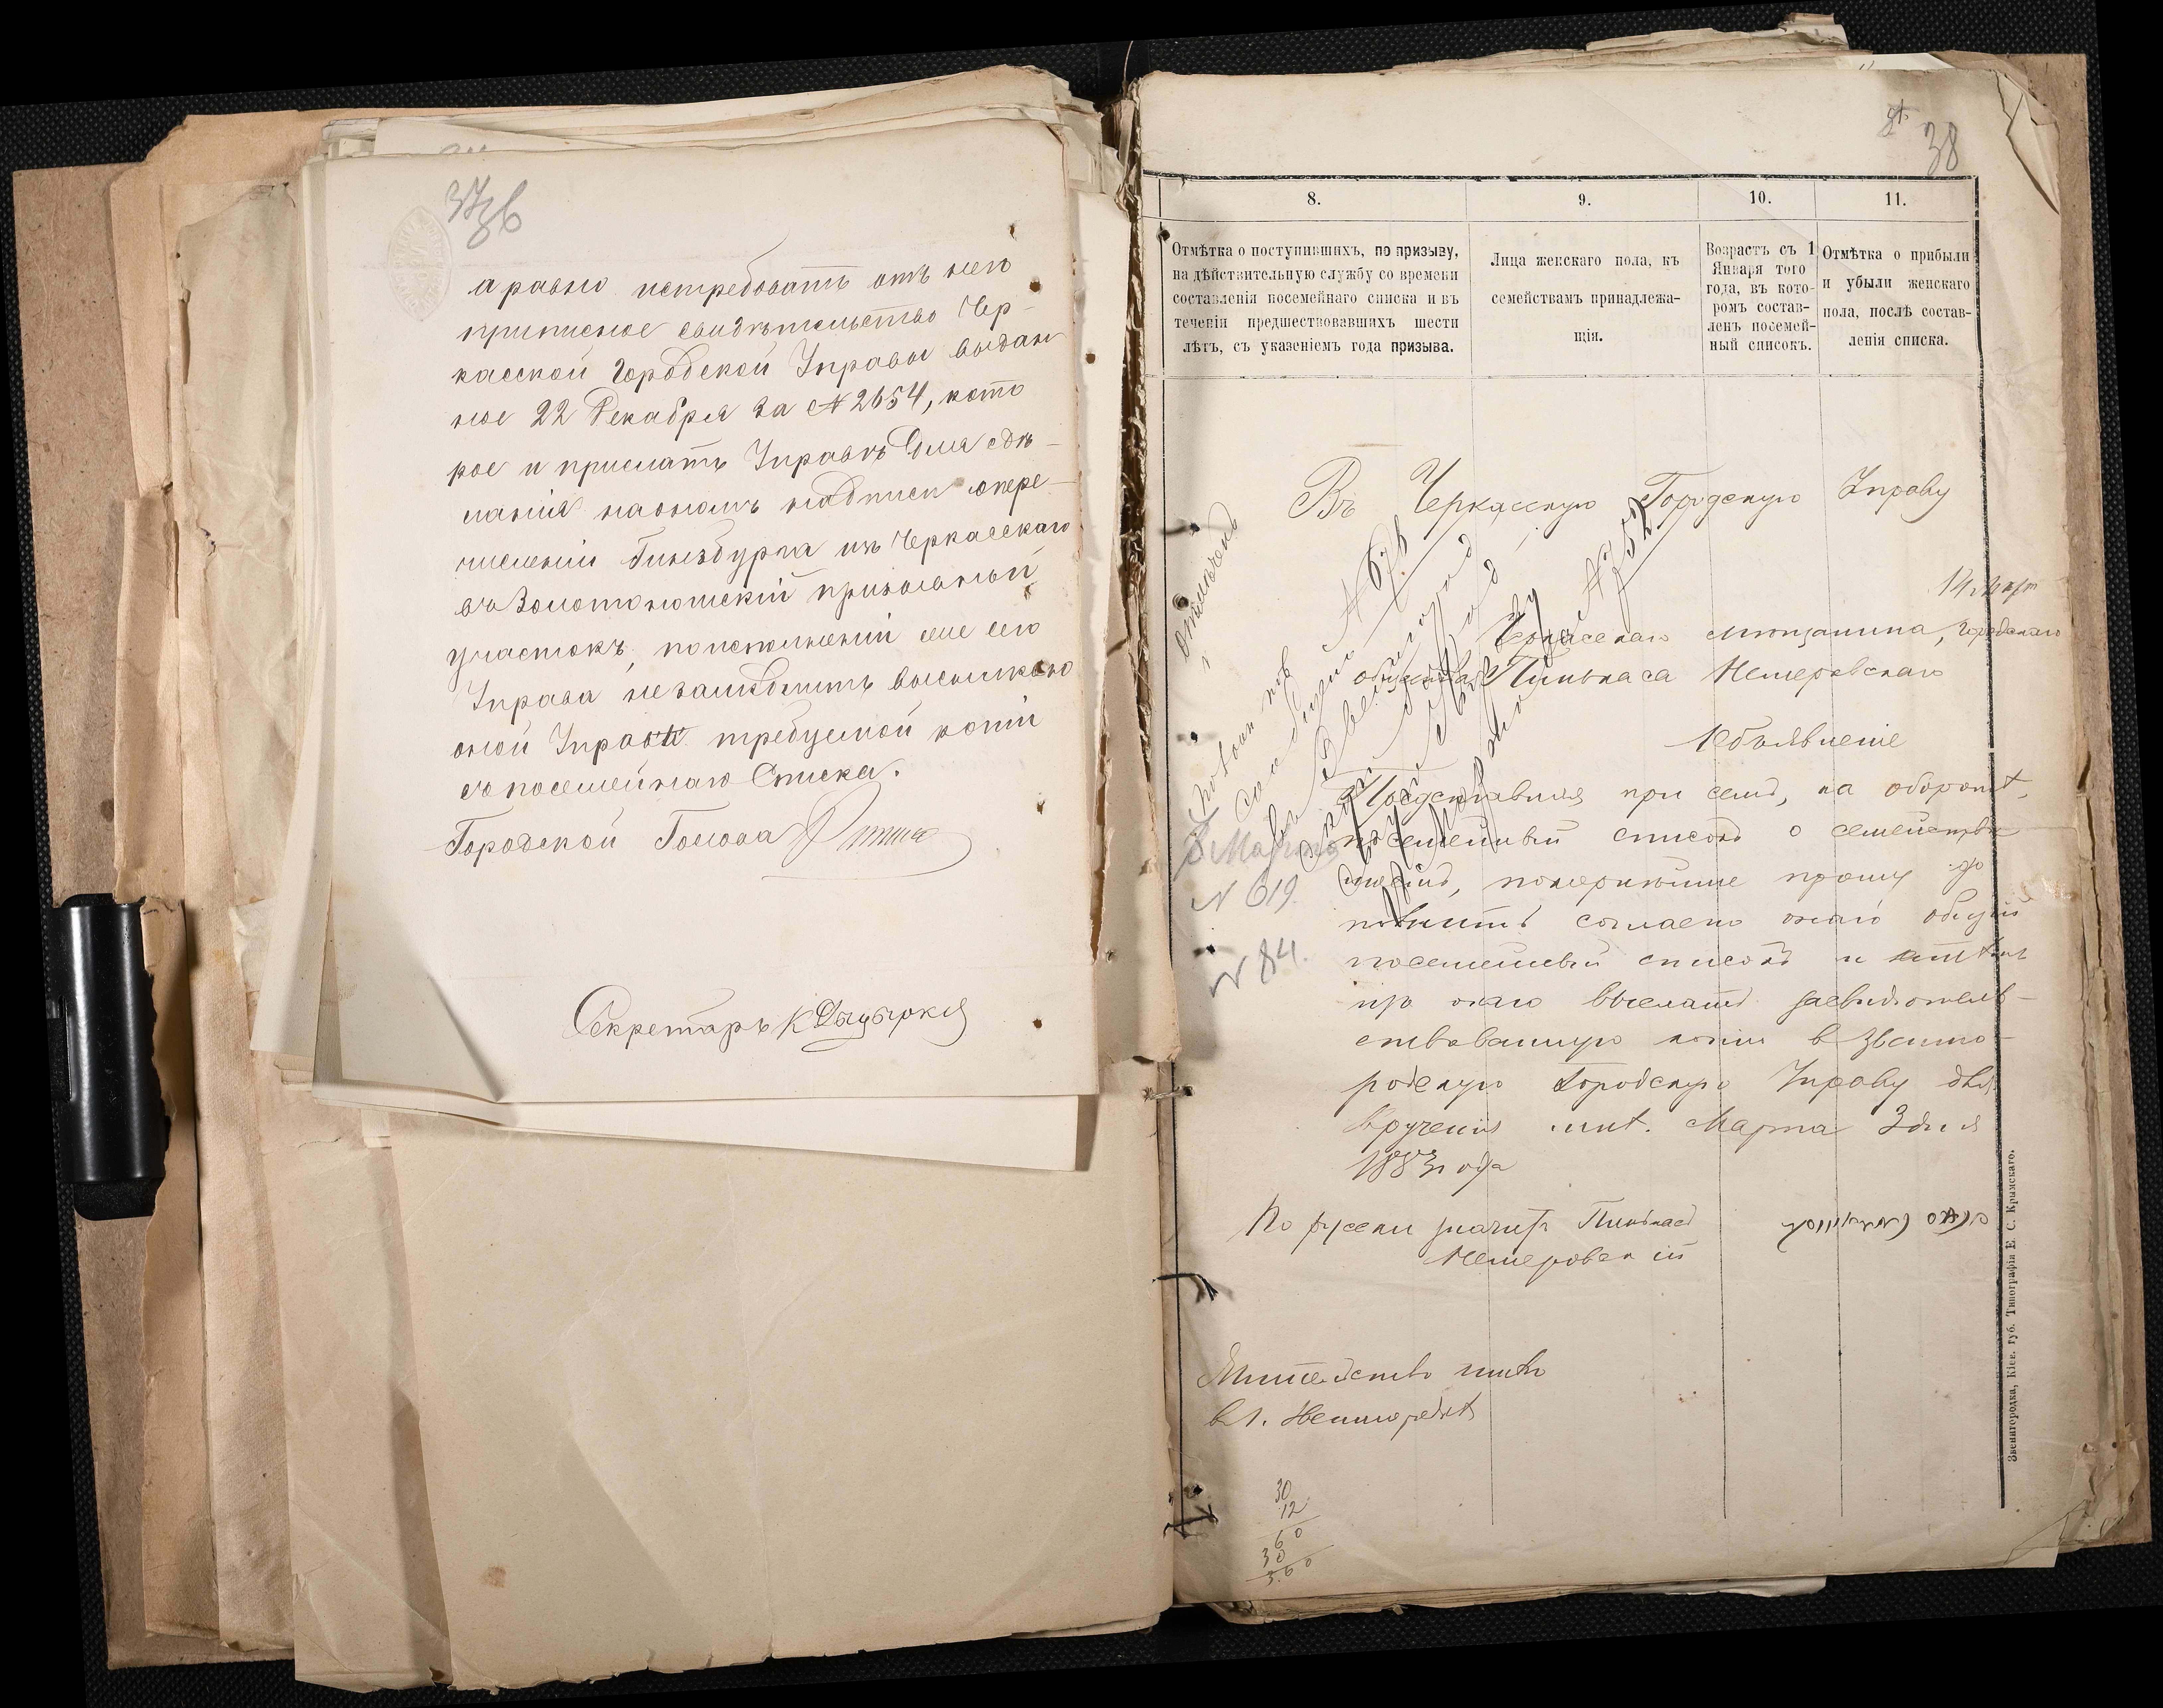 37 36
а равно истребовать отъ него
приписное свидѣтельство Чер-
касской Городской Управы выдан
ное 22 Декабря за № 2654, кото
рое и прислать Управѣ для сдѣ-
лания на ономъ надписи опере-
числении Гинзбурга изъ Черкасскаго
въ Золотоношский призывный
участокъ, по исполнении чего
Управа не замедлитъ высылкою
оной Управѣ требуемой копии
съ посемейнаго Списка.
Городской Голова
Секретарь
38
8.
9.
10.
11.
Отмѣтка о поступившихъ, по призыву,
на дѣйствительную службу со времени
составленія посемейнаго списка и въ
теченіи предшествовавшихъ шести
лѣтъ, съ указеніемъ года призыва.
Лица женскаго пола, къ
семействамъ принадлежа-
щія.
Возрастъ съ 1
Января того
года, въ кото-
ромъ состав-
ленъ посемей-
ный списокъ.
Отмѣтка о прибыли
и убыли женскаго
пола, послѣ состав-
ленія списка.
Въ Черкасскую Городскую Управу
Черкасскаго мѣщанина,
общества Пинькаса Немеровскаго
Объявление
Представляя при семъ, на оборотѣ,
посемейный списокъ о семействѣ
моемъ, покорнѣйше прошу до
полнить согласно онаго общий
посемейный списокъ и
онаго выслать засвидѣтель-
ствованную копию в Звениго-
родскую Городскую Управу для
вручения мнѣ. Марта 3 дня
1883 года
По русски значитъ Пинькасъ
Немеровский
Жительство имѣю
в г. Звенигородкѣ
№ 678
№ 752
8 Марта
№ 619
№ 84.
30
12
60
30
3.60
Звенигородка, Кіев. губ. Типографія Е. С. Крамскаго.